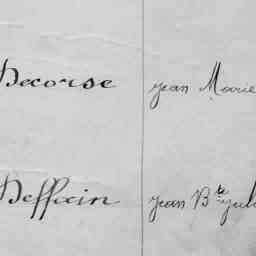 Decorse jean Marie
Deffain jean Bte